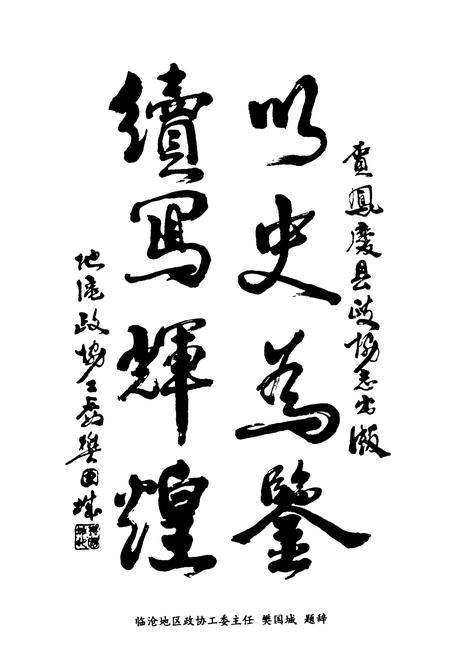 賀鳳慶县政协志出版
以史為鑒
續寫輝煌
地区政协工委樊国城
临沧地区政协工委主任 樊国城 题辞